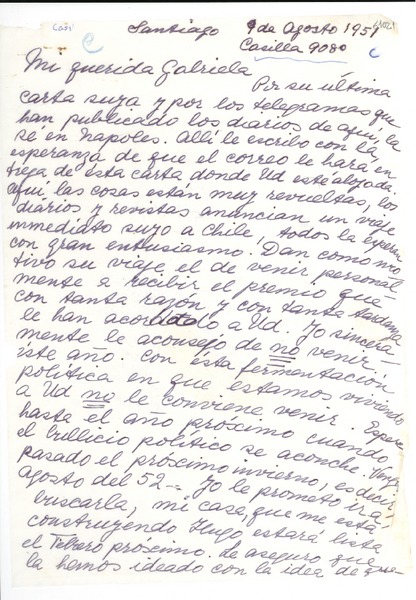 Santiago 9 de Agosto 1951
Casilla 9080
Mi querida Gabriela
Por su última
carta suya y por los telegramas que
han publicado los diarios de aquí, la
sé en Napoles. Allí le escribo con la
esperanza de que el correo le hará en
trega de ésta carta donde Ud esté alojada.
Aquí las cosas están muy revueltas, los
diários y revistas anuncian un viaje
inmediato suyo a Chile, todos la esperan
con gran entusiasmo. Dan como mo
tivo su viaje, el de venir personal
mente a recibir el premio que
con tanta razón y con tanta tardanza
le han acordado a Ud. Yo sincera
mente le aconsejo de no venir
éste año. Con ésta fermentación
política en que estamos viviendo
a Ud no le conviene venir. Espere
hasta el año próximo cuando
el bullicio político se aconche. Venga
pasado el próximo invierno, es decir
agosto del 52_ Yo le prometo ir a
buscarla, mi casa que me está
construyendo Hugo estará lista
el Febrero próximo. Le aseguro que
la hemos ideado con la idea de que